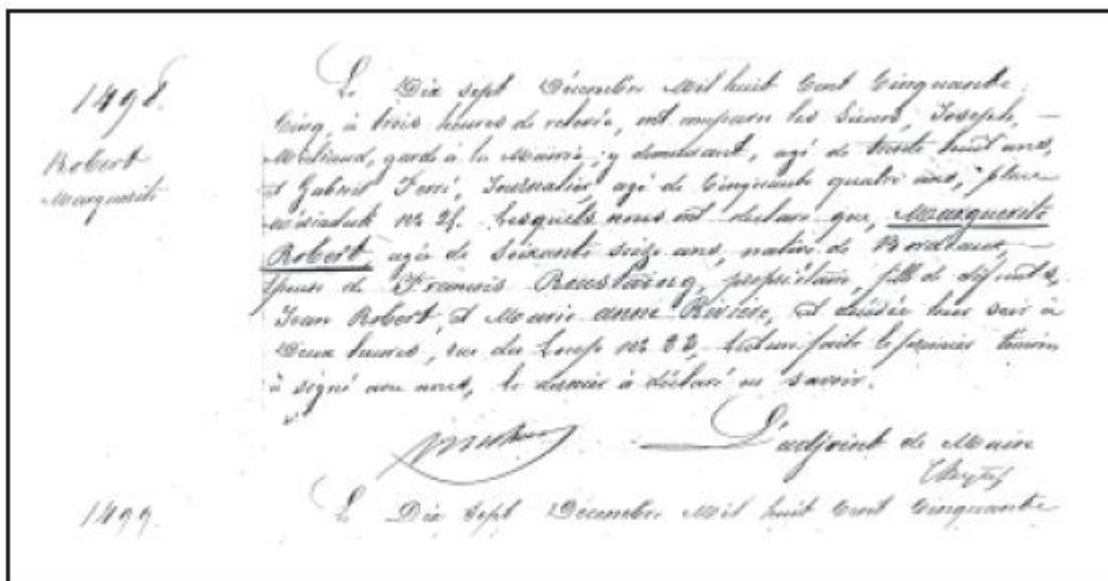 1498.
Robert
Marguerite
Le Dix sept Décembre Mil huit Cent Cinquante
Cinq, à trois heures de relevée, ont comparu les Sieurs, Joseph, —
garde à la Mairie, y demeurant, agé de trente huit ans,
et Gabriel Ferré, Journalier, agé de Cinquante quatre ans, place
Mériadeck no Lesquels nous ont déclaré que, Marguerite
Robert, agée de Soixante Seize ans, native de Bordeaux, —
épouse de Francois propriétaire, fille de défunts,
Jean Robert, et Marie anne Rivière, est décédée hier soir à
Deux heures, rue du Loup no Lecture faite le premier témoin
à signé avec nous, le dernier à déclaré ne savoir.
L'adjoint de Maire
1499.
Le Dix Sept Décembre Mil huit Cent Cinquante